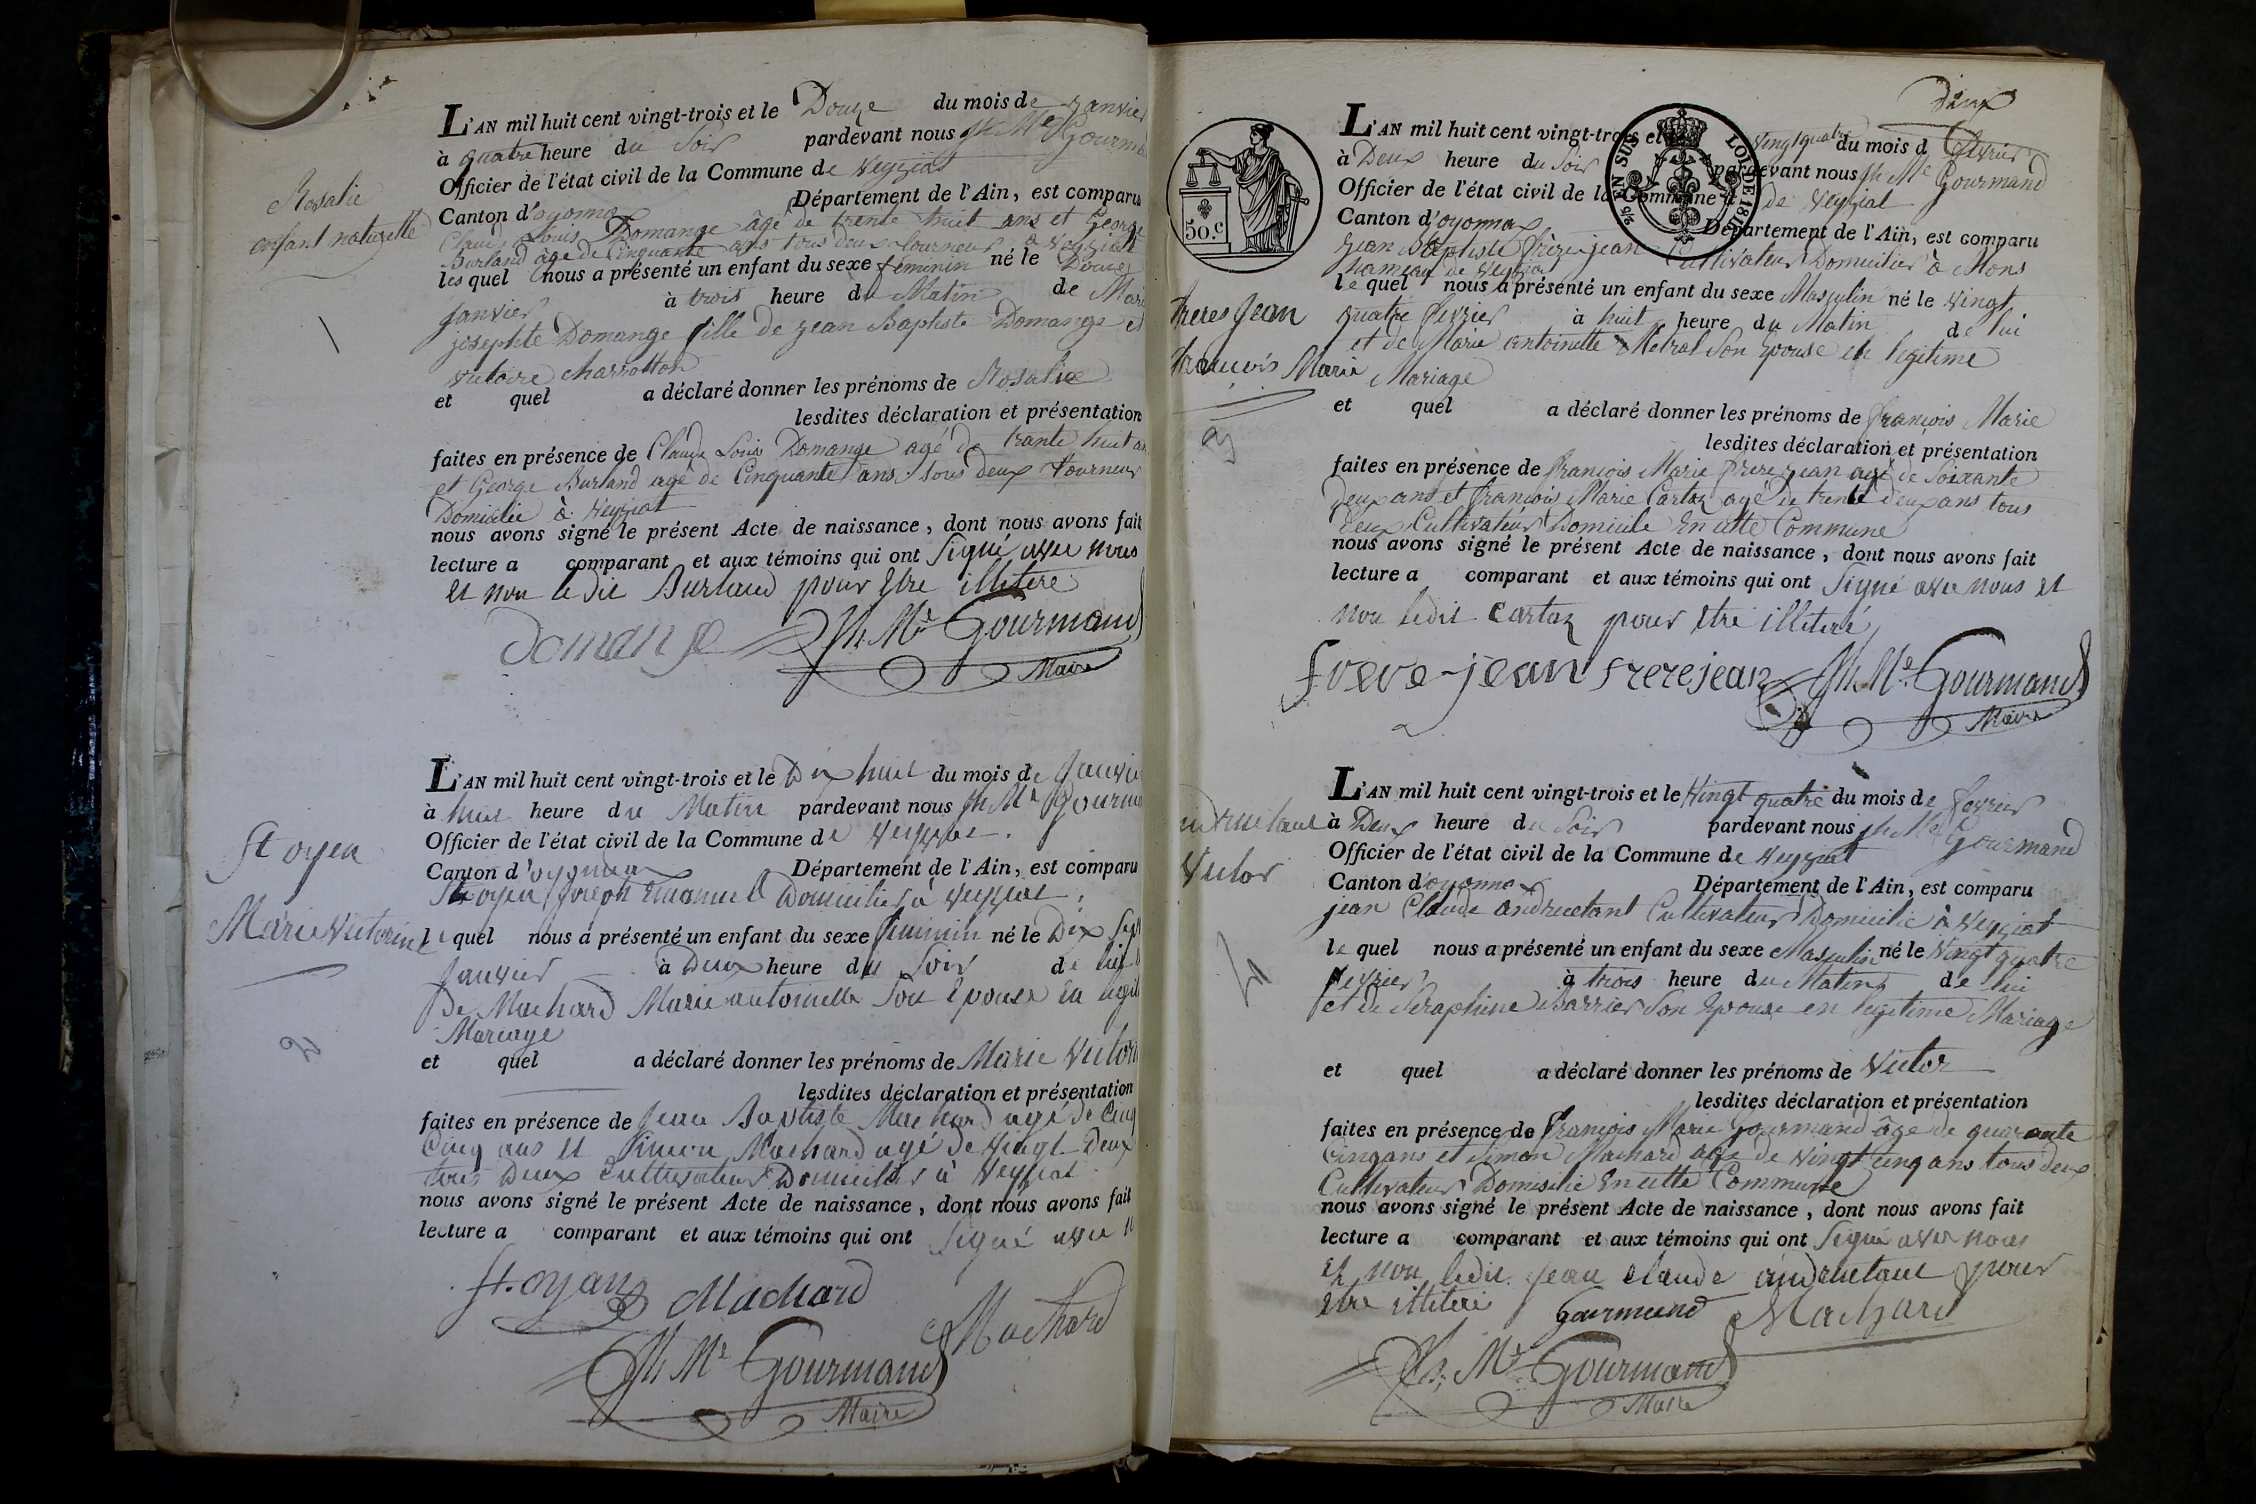 L'AN mil huit cent vingt-trois et le Douze du mois de Janvier
à quatre heure du Soir pardevant nous fk Me Gourm
Officier de l'état civil de la Commune de Veyziat
Canton d'oyonnax Département de l'Ain, est comparu
Claude Louis Domange âgé de trente huit ans et George
Burland âgé de Cinquante ans tous deux tourneur à Veyziat
les quel nous a présenté un enfant du sexe féminin né le Douze
Janvier à trois heure du Matin de Marie
josephte Domange fille de jean Baptiste Domange et
victoire charrotton
et quel a déclaré donner les prénoms de Rosalie
lesdites déclaration et présentation
faites en présence de Claude Louis Domange agé de trante huit an
et George Burland agé de Cinquante ans, tous deux tourneur
Domicilié à Veyziat
nous avons signé le présent Acte de naissance, dont nous avons fait
lecture a comparant et aux témoins qui ont Signé avec nous
et non le dit Burland pour Etre illiteré
Domange Me Gourmand
Maire
Rosalie
enfant naturelle
1
L'AN mil huit cent vingt-trois et le Dix huit du mois de Janvie
à huit heure du Matin pardevant nous Me Gourm
Officier de l'état civil de la Commune de Veyziat
Canton d'oyonnax Département de l'Ain, est comparu
St oyen joseph Emanuel Domicilier à Veyziat
le quel nous a présenté un enfant du sexe feminin né le Dix Sept
Janvier à Deux heure du Soir de lui
De Machard Marie antoinette Son Epouse en legit
Mariage
et quel a déclaré donner les prénoms de Marie Victori
lesdites déclaration et présentation
faites en présence de Jean Baptiste Machard agé de Cinq
Cinq ans et Simon Machard agé de Vingt Deux
tous Deux Cultivateur Domicilier à Veyziat
nous avons signé le présent Acte de naissance, dont nous avons fait
lecture a comparant et aux témoins qui ont Signé avec n
St. oyan Machard
Machard
Me Gourmand
Maire
St oyen
Marie Victorine
2
Deux
50.c
2/5 EN SUS LOI DE 1816
L'AN mil huit cent vingt-trois et le Vingt quatre du mois d fevrier
à Deux heure du Soir pardevant nous Me Gourmand
Officier de l'état civil de la Commune de Veyziat
Canton d'oyonnax Département de l'Ain, est comparu
jean Baptiste frère jean Cultivateur Domicilier à Mons
hameau de Veyziat
le quel nous a présenté un enfant du sexe Masculin né le vingt
quatre fevrier à huit heure du Matin de lui
et de Marie antoinette Metral Son Epouse en legitime
Mariage
et quel a déclaré donner les prénoms de françois Marie
lesdites déclaration et présentation
faites en présence de françois Marie frere jean agé de Soixante
deux ans et françois Marie Cartaz agé de trente deux ans tous
deux Cultivateur Domicile En cette Commune
nous avons signé le présent Acte de naissance, dont nous avons fait
lecture a comparant et aux témoins qui ont Signé avec nous et
non ledit Cartaz pour Etre illiteré
frere-jean frerejean Me Gourmand
Maire
freres Jean
françois Marie
3
L'AN mil huit cent vingt-trois et le Vingt quatre du mois de fevrier
à Deux heure du Soir pardevant nous Me Gourmand
Officier de l'état civil de la Commune de Veyziat
Canton d'oyonnax Département de l'Ain, est comparu
jean Claude andruetant Cultivateur Domicilié à Veyziat
le quel nous a présenté un enfant du sexe Masculin né le Vingt quatre
fevrier à trois heure du Matin de lui
et de Seraphine Barrier Son Epouse en legitime Mariage
et quel a déclaré donner les prénoms de Victor
lesdites déclaration et présentation
faites en présence de François Marie Gourmand âgé de quarante
Cinq ans et Simon Machard agé de vingt cinq ans tous deux
Cultivateur Domicilié En cette Commune
nous avons signé le présent Acte de naissance, dont nous avons fait
lecture a comparant et aux témoins qui ont Signé avec nous
et non ledit Jean Claude andruetant pour
Etre illiteré Gourmand Machard
Me Gourmand
Maire
Victor
4